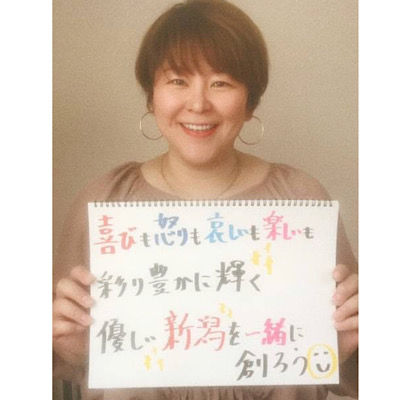 喜びも怒りも哀しいも楽しいも
彩り豊かに輝く
優しい新潟を一緒に
創ろう